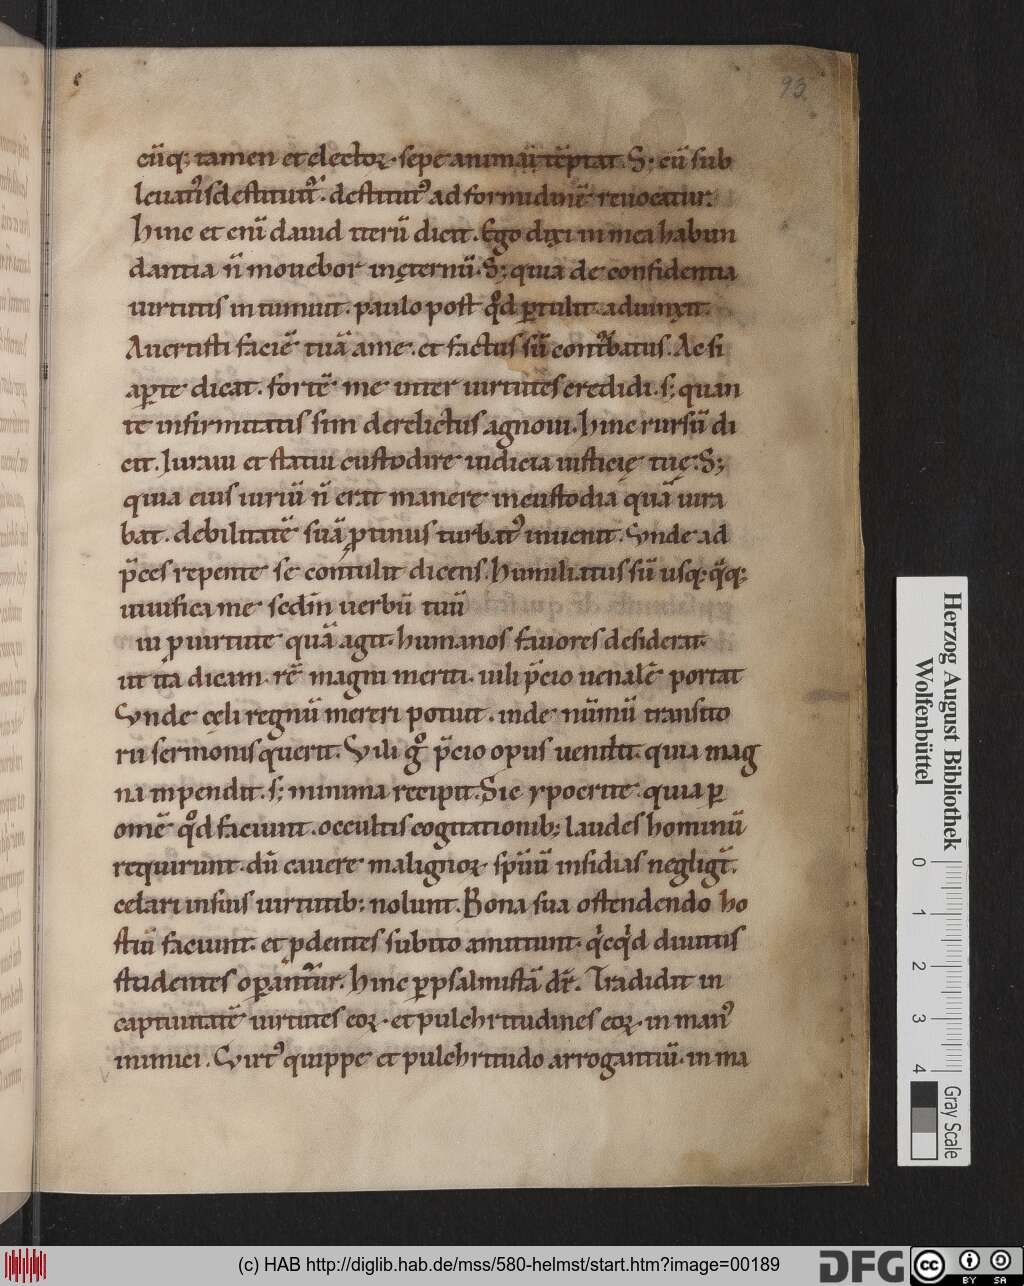 93
cūq; tamen et electoꝝ· sepe animaū tēptat. S; cū sub
leuatꝰ is destituitᷣ. destitutꝰ ad formidinē reuocatur.
Hinc et enī dauid iterū dicit. Ego dixi in mea habun
dantia n̄ mouebor in ęternū. S; quia de confidentia
uirtutis intumuit. paulo post qͦd ꝑtulit adiunxit.
Auertisti faciē tuā a me. et factus sū conͭbatus. Ac si
aꝑte dicat. fortē me inter uirtutes credidi. s; quan
tę infirmitatis sim derelictus agnoui. Hinc rursū di
cit. Iuraui et statui custodire iudicia iusticię tuę. S;
quia eius uiriū n̄ erat manere in custodia quā iura
bat. debilitatē suā ꝓtinus turbatꝰ inuenit. Vnde ad
p̄ces repente se contulit dicens. Humiliatus sū usq; q̄q;
uiuifica me secdm̄ uerbū tuū
ui ꝓ uirtute quā agit. humanos fauores desiderat.
ut ita dicam. rē magni meriti. uili p̄cio uenalē portat
Vnde cęli regnū mereri potuit. inde nūmū transito
rii sermonis querit. Vili gͦ p̄cio opus uendit. quia mag
na inpendit. s; minima recipit. Sic ypocritę· quia ꝑ
omē qͦd faciunt. occultis cogitationib; laudes hominū
requirunt. dū cauere malignoꝝ sp̄uū insidias negligt̄.
celari in suis uirtutib; nolunt. Bona sua ostendendo ho
stiū faciunt. et ꝓdentes subito amittunt. qͥcqͥd diutius
studentes oꝑantᷣur. Hinc ꝑ psalmistā dr̄. Tradidit in
captiuitatē uirtutes eoꝝ· et pulchritudines eoꝝ· in manꝰ
inimici. Virtꝰ quippe et pulchritudo arrogantiū. in ma
Herzog August Bibliothek
Wolfenbüttel
0 1 2 3 4
Gray Scale
(c) HAB http://diglib.hab.de/mss/580-helmst/start.htm?image=00189
DFG
cc BY SA